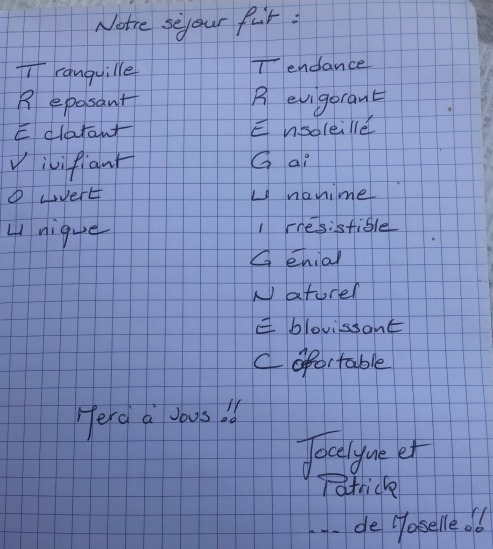 Notre séjour fût :
T ranquille
R eposant
E clatant
V ivifiant
O uvert
U nique
T endance
R evigorant
E nsoleillé
G ai
U nanime
I rrésistible
G énial
N aturel
E blouissant
C ôfortable
Merci à vous !!
Jocelyne et
Patrick
... de Moselle !!